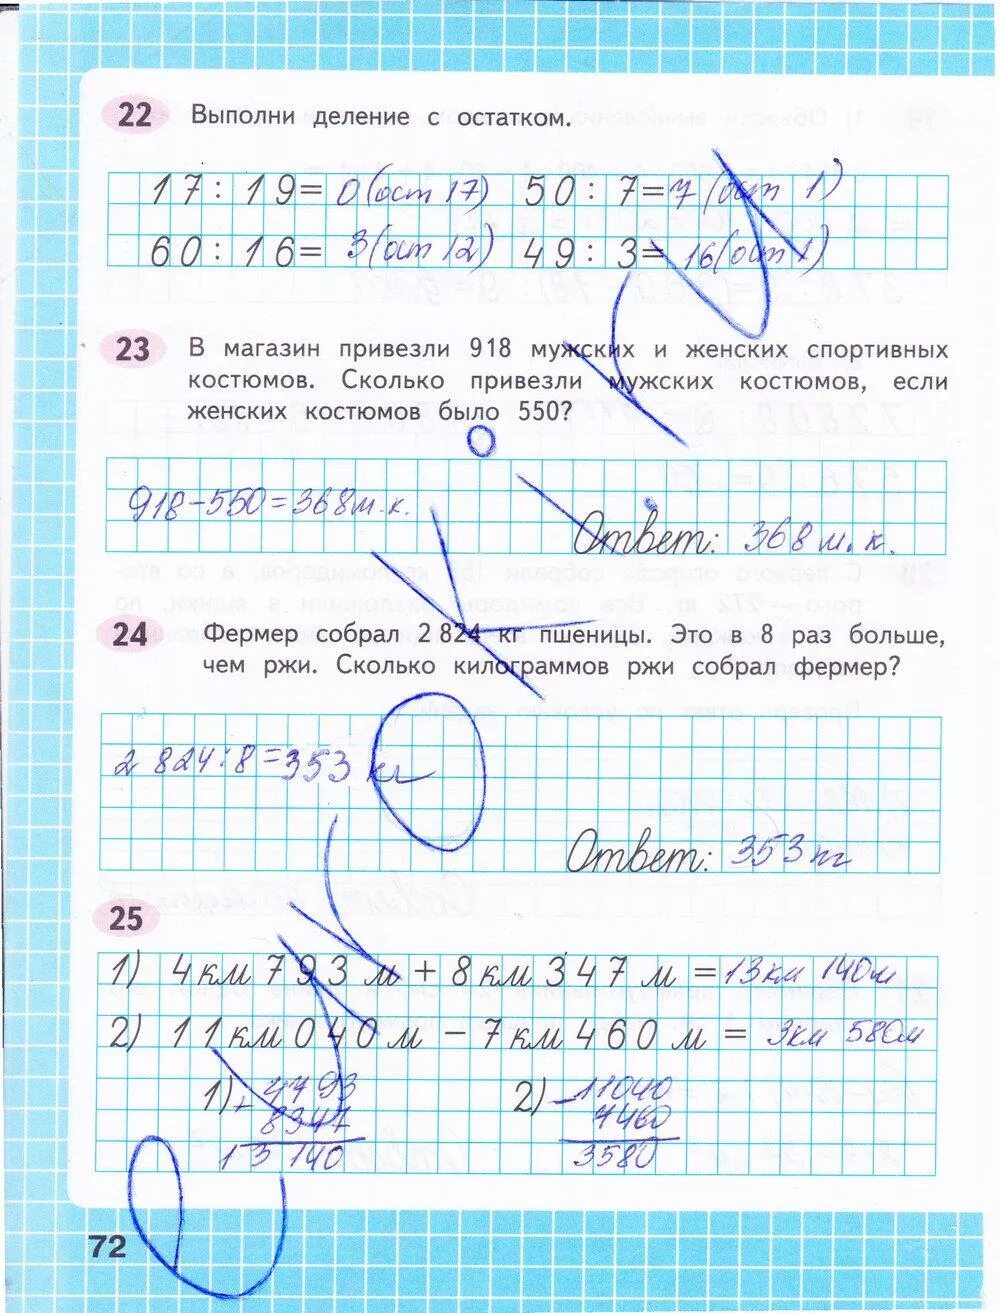 22 Выполни деление с остатком.
17 : 19 = 0 (ост 17) 50 : 7 = 7 (ост 1)
60 : 16 = 3 (ост 12) 49 : 3 = 16 (ост 1)
23 В магазин привезли 918 мужских и женских спортивных
костюмов. Сколько привезли мужских костюмов, если
женских костюмов было 550?
918 - 550 = 368 м. к.
Ответ: 368 м. к.
24 Фермер собрал 2 824 кг пшеницы. Это в 8 раз больше,
чем ржи. Сколько килограммов ржи собрал фермер?
2 824 : 8 = 353 кг
Ответ: 353 кг
25
1) 4 км 793 м + 8 км 347 м = 13 км 140 м
2) 11 км 040 м - 7 км 460 м = 3 км 580 м
1) + 4793 2) - 11040
8347 7460
13 140 3580
72